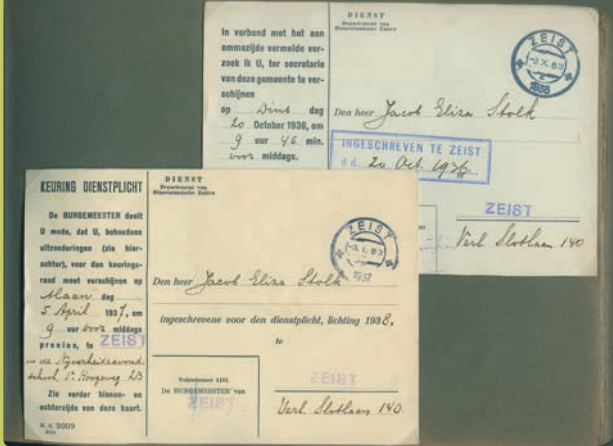 In verband met het aan
ommezijde vermelde ver-
zoek ik U, ter secretarie
van deze gemeente te ver-
schijnen
op Dins dag
20 October 1936, om
9 uur 45 min.
voor middags.
DIENST
Departement van
Binnenlandsche Zaken
ZEIST
1936
Den heer Jacob Eliza Stolk
INGESCHREVEN TE ZEIST
d.d. 20 Oct. 1936
ZEIST
Verl Slotlaan 140
KEURING DIENSTPLICHT
De BURGEMEESTER deelt
U mede, dat U, behoudens
uitzonderingen (zie hier-
achter), voor den keurings-
raad moet verschijnen op
Maan dag
5 April 1937, om
9 uur voor middags
precies, te ZEIST
in de Nijverheidsavond-
school 1e Hoogeweg 2B
Zie verder binnen- en
achterzijde van deze kaart.
9009
DIENST
Departement van
Binnenlandsche Zaken
ZEIST
1937
Den heer Jacob Eliza Stolk
ingeschrevene voor den dienstplicht, lichting 1938,
te
ZEIST
De BURGEMEESTER van
ZEIST
Verl. Slotlaan 140.